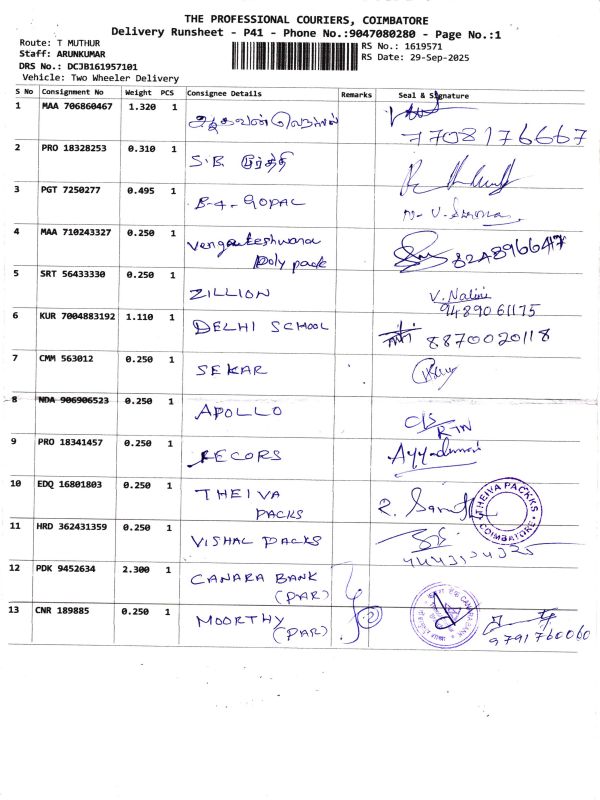 THE PROFESSIONAL COURIERS, COIMBATORE
Delivery Runsheet - P41 - Phone No.:9047080280 - Page No.:1
Route: T MUTHUR
Staff: ARUNKUMAR
DRS No.: DCJB161957101
Vehicle: Two Wheeler Delivery
RS No.: 1619571
RS Date: 29-Sep-2025
S No Consignment No Weight PCS Consignee Details Remarks Seal & Signature
1 MAA 706860467 1.320 1
7708176667
2 PRO 18328253 0.310 1 S.B. மூர்த்தி
3 PGT 7250277 0.495 1 B-4- GOPAL
4 MAA 710243327 0.250 1 Vengateshwara
Poly pack
5 SRT 56433330 0.250 1 ZILLION V. Nalini
9489061175
6 KUR 7004883192 1.110 1 DELHI SCHOOL 8870020118
7 CMM 563012 0.250 1 SEKAR
8 NDA 906906523 0.250 1 APOLLO
RTN
9 PRO 18341457 0.250 1 RECORS
10 EDQ 16801803 0.250 1 THEIVA
PACKS
THEIVA PACKKS
COIMBATORE
11 HRD 362431359 0.250 1 VISHAL PACKS
12 PDK 9452634 2.300 1 CANARA BANK
(PAR)
CANARA BANK
13 CNR 189885 0.250 1 MOORTHY
(PAR)
2
9791760060